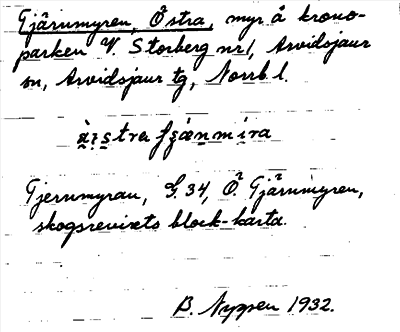 Tjärnmyren, Östra, myr å krono-
parken V. Storberg nr 1, Arvidsjaur
sn, Arvidsjaur tg, Norrb l.
Tjernmyrau, G. 34, Ö. Tjärnmyren,
skogsrevirets block-karta.
B. Nyppen 1932.